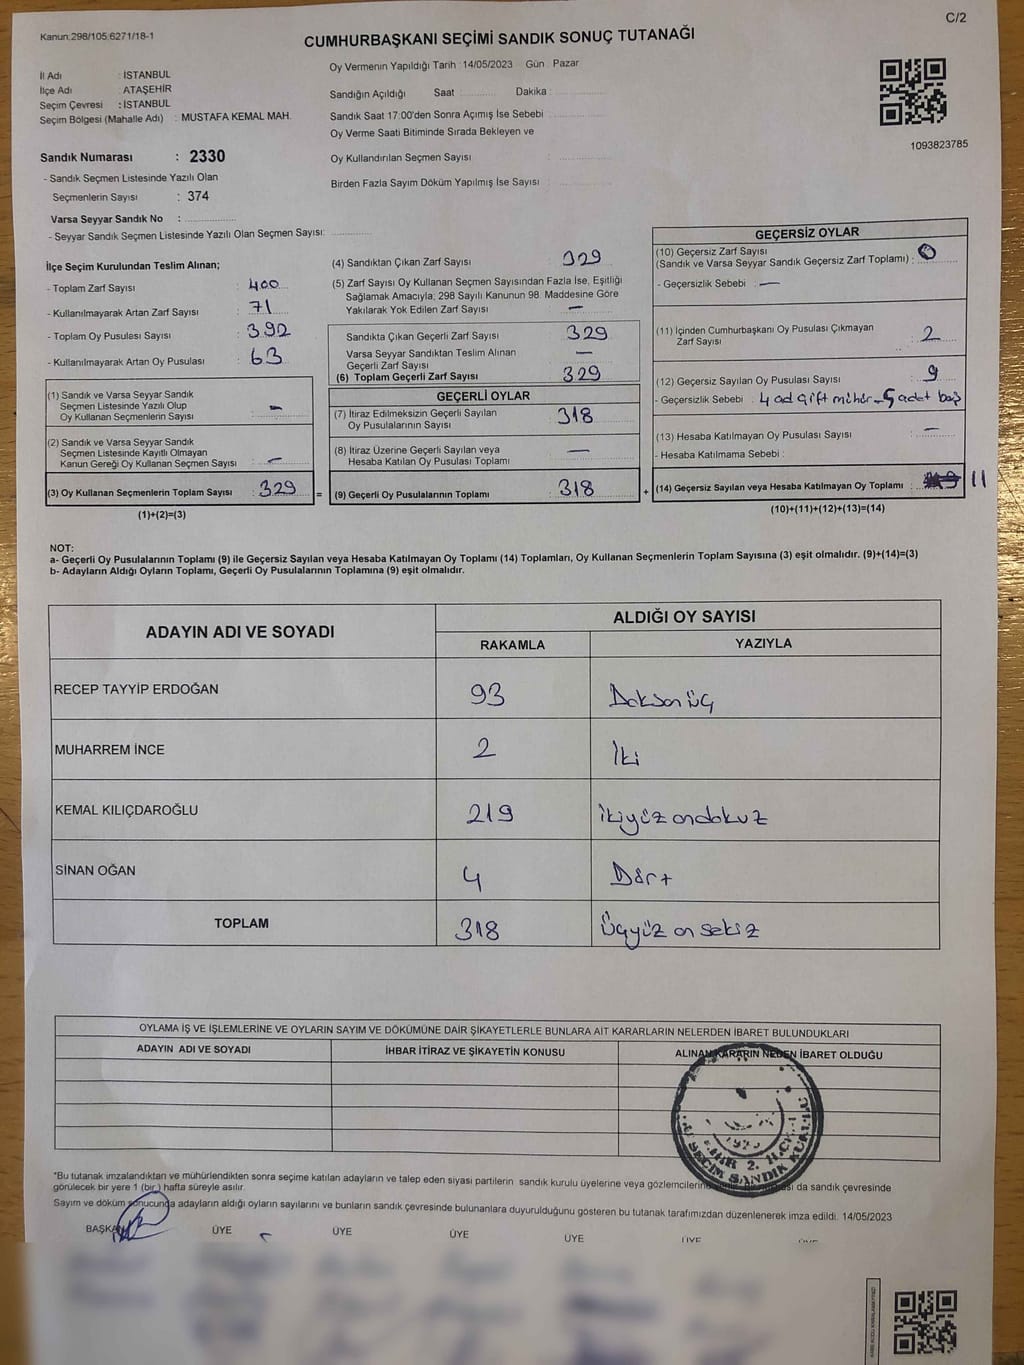 C/2
Kanun:298/105.6271/18-1
CUMHURBAŞKANI SEÇİMİ SANDIK SONUÇ TUTANAĞI
İl Adı : İSTANBUL
İlçe Adı : ATAŞEHİR
Seçim Çevresi : İSTANBUL
Seçim Bölgesi (Mahalle Adı) : MUSTAFA KEMAL MAH.
Sandık Numarası : 2330
- Sandık Seçmen Listesinde Yazılı Olan
Seçmenlerin Sayısı : 374
Varsa Seyyar Sandık No :
- Seyyar Sandık Seçmen Listesinde Yazılı Olan Seçmen Sayısı:
Oy Vermenin Yapıldığı Tarih : 14/05/2023 Gün : Pazar
Sandığın Açıldığı Saat : Dakika :
Sandık Saat 17:00'den Sonra Açımış İse Sebebi :
Oy Verme Saati Bitiminde Sırada Bekleyen ve
Oy Kullandırılan Seçmen Sayısı :
Birden Fazla Sayım Döküm Yapılmış İse Sayısı :
1093823785
İlçe Seçim Kurulundan Teslim Alınan;
- Toplam Zarf Sayısı : 400
- Kullanılmayarak Artan Zarf Sayısı : 71
- Toplam Oy Pusulası Sayısı : 392
- Kullanılmayarak Artan Oy Pusulası : 63
(1) Sandık ve Varsa Seyyar Sandık
Seçmen Listesinde Yazılı Olup
Oy Kullanan Seçmenlerin Sayısı : -
(2) Sandık ve Varsa Seyyar Sandık
Seçmen Listesinde Kayıtlı Olmayan
Kanun Gereği Oy Kullanan Seçmen Sayısı : -
(3) Oy Kullanan Seçmenlerin Toplam Sayısı : 329 =
(1)+(2)=(3)
(4) Sandıktan Çıkan Zarf Sayısı : 329
(5) Zarf Sayısı Oy Kullanan Seçmen Sayısından Fazla İse, Eşitliği
Sağlamak Amacıyla; 298 Sayılı Kanunun 98. Maddesine Göre
Yakılarak Yok Edilen Zarf Sayısı : -
Sandıkta Çıkan Geçerli Zarf Sayısı : 329
Varsa Seyyar Sandıktan Teslim Alınan
Geçerli Zarf Sayısı : -
(6) Toplam Geçerli Zarf Sayısı : 329
GEÇERLİ OYLAR
(7) İtiraz Edilmeksizin Geçerli Sayılan
Oy Pusulalarının Sayısı : 318
(8) İtiraz Üzerine Geçerli Sayılan veya
Hesaba Katılan Oy Pusulası Toplamı : -
(9) Geçerli Oy Pusulalarının Toplamı : 318 +
GEÇERSİZ OYLAR
(10) Geçersiz Zarf Sayısı
(Sandık ve Varsa Seyyar Sandık Geçersiz Zarf Toplamı) : 0
- Geçersizlik Sebebi : -
(11) İçinden Cumhurbaşkanı Oy Pusulası Çıkmayan
Zarf Sayısı : 2
(12) Geçersiz Sayılan Oy Pusulası Sayısı : 9
- Geçersizlik Sebebi : 4 ad çift mühür - 5 adet boş
(13) Hesaba Katılmayan Oy Pusulası Sayısı : -
- Hesaba Katılmama Sebebi :
(14) Geçersiz Sayılan veya Hesaba Katılmayan Oy Toplamı : 11
(10)+(11)+(12)+(13)=(14)
NOT:
a- Geçerli Oy Pusulalarının Toplamı (9) ile Geçersiz Sayılan veya Hesaba Katılmayan Oy Toplamı (14) Toplamları, Oy Kullanan Seçmenlerin Toplam Sayısına (3) eşit olmalıdır. (9)+(14)=(3)
b- Adayların Aldığı Oyların Toplamı, Geçerli Oy Pusulalarının Toplamına (9) eşit olmalıdır.
ADAYIN ADI VE SOYADI ALDIĞI OY SAYISI
RAKAMLA YAZIYLA
RECEP TAYYİP ERDOĞAN 93 Doksan üç
MUHARREM İNCE 2 İki
KEMAL KILIÇDAROĞLU 219 İkiyüz ondokuz
SİNAN OĞAN 4 Dört
TOPLAM 318 Üçyüz on sekiz
OYLAMA İŞ VE İŞLEMLERİNE VE OYLARIN SAYIM VE DÖKÜMÜNE DAİR ŞİKAYETLERLE BUNLARA AİT KARARLARIN NELERDEN İBARET BULUNDUKLARI
ADAYIN ADI VE SOYADI İHBAR İTİRAZ VE ŞİKAYETİN KONUSU ALINAN KARARIN NEDEN İBARET OLDUĞU
SEÇİM SANDIK KURULU
*Bu tutanak imzalandıktan ve mühürlendikten sonra seçime katılan adayların ve talep eden siyasi partilerin sandık kurulu üyelerine veya gözlemcilerine da sandık çevresinde
görülecek bir yere 1 (bir ) hafta süreyle asılır.
Sayım ve döküm sonucunda adayların aldığı oyların sayılarını ve bunların sandık çevresinde bulunanlara duyurulduğunu gösteren bu tutanak tarafımızdan düzenlenerek imza edildi. 14/05/2023
BAŞKAN ÜYE ÜYE ÜYE ÜYE ÜYE ÜYE